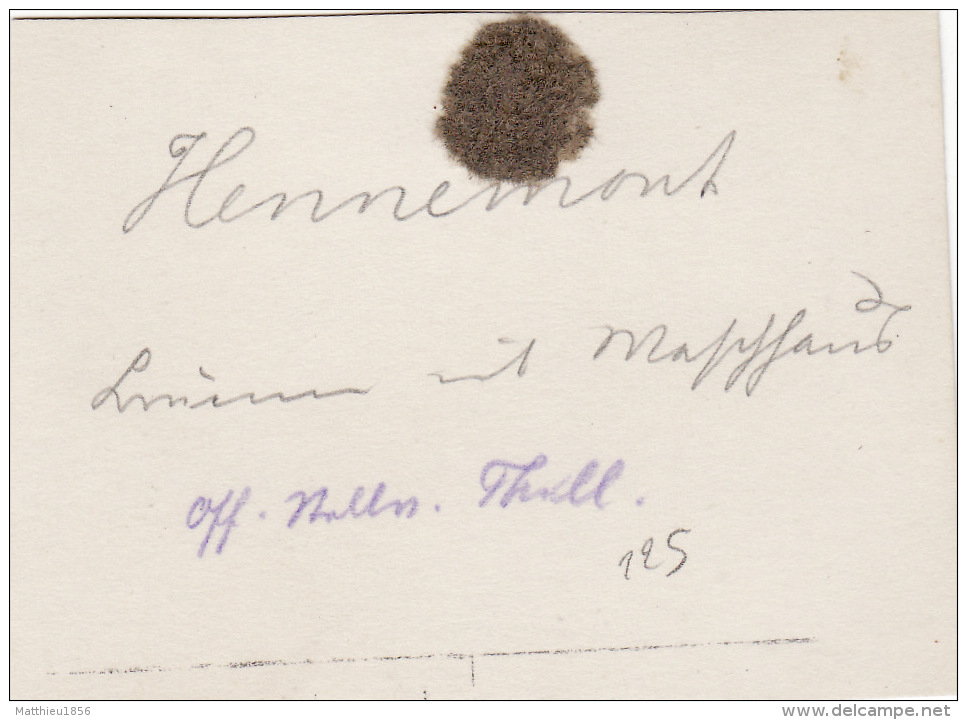 Hennemont
Brunnen mit Waschhaus
Off. Stellv. Thull.
125
Matthieu1856
delcampe.net